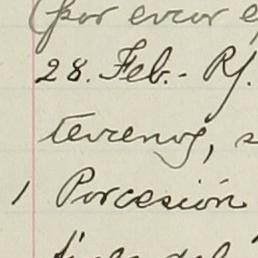 (por error e
28. Feb.- Rf.
terrenos, s
1 Porcesión